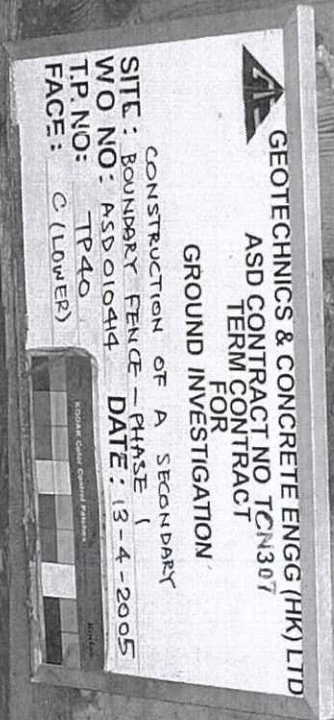 GEOTECHNICS & CONCRETE ENGG (HK) LTD
ASD CONTRACT NO TCN307
TERM CONTRACT
FOR
GROUND INVESTIGATION
CONSTRUCTION OF A SECONDARY
SITE: BOUNDARY FENCE - PHASE 1
WO NO: ASD010414 DATE: 13-4-2005
T.P. NO: TP40
FACE: C (LOWER)
KODAK Color Control Patches
Kodak